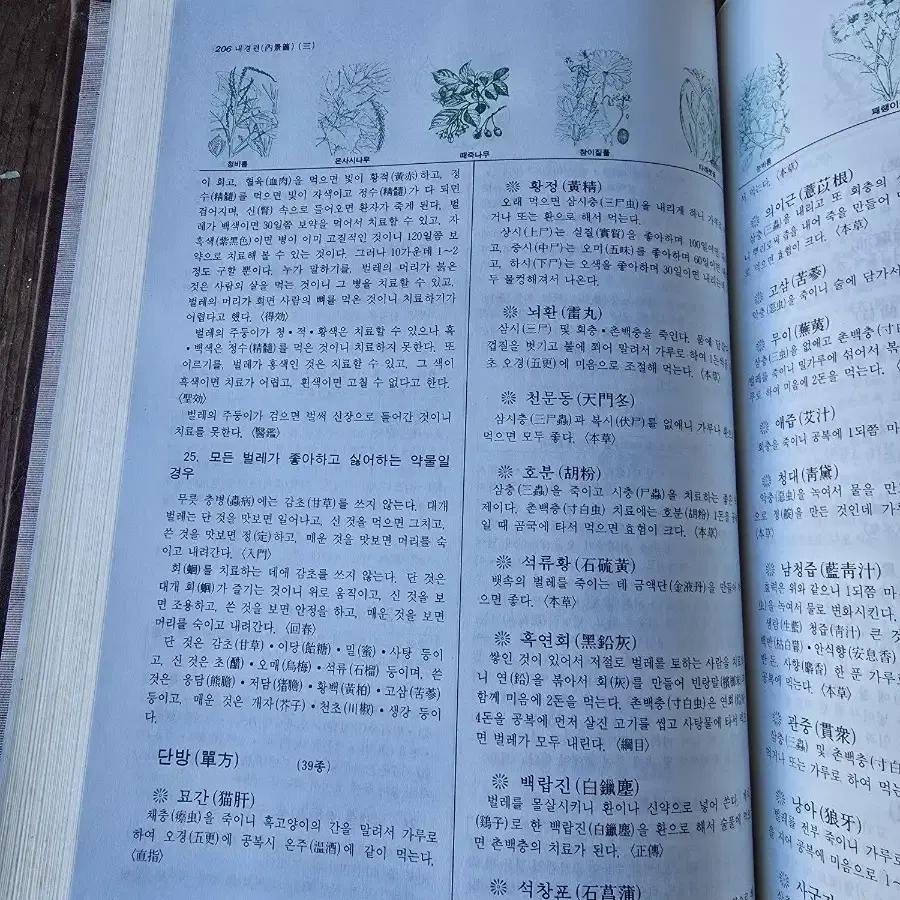 206 내경편(內景篇) (三)
참비름
은사시나무
때죽나무
참이질풀
이 희고, 혈육(血肉)을 먹으면 빛이 황적(黃赤)하고, 정
수(精髓)를 먹으면 빛이 자색이고 정수(精髓)가 다 되면
검어지며, 신(腎) 속으로 들어오면 환자가 죽게 된다. 빛
이 백색이면 30일쯤 보약을 먹어서 치료할 수 있고, 자
흑색(紫黑色)이면 병이 이미 고질적인 것이니 120일쯤 보
약으로 치료해 볼 수 있는 것이다. 그러나 10가운데 1~2
정도 구할 뿐이다. 누가 말하기를, 벌레의 머리가 붉은
것은 사람의 살을 먹는 것이니 그 병을 치료할 수 있고,
벌레의 머리가 희면 사람의 뼈를 먹은 것이니 치료하기가
어렵다고 했다. 〈得効〉
벌레의 주둥이가 청•적•황색은 치료할 수 있으나 흑
•백색은 정수(精髓)를 먹은 것이니 치료하지 못한다. 또
이르기를, 벌레가 홍색인 것은 치료할 수 있고, 그 색이
흑색이면 치료가 어렵고, 흰색이면 고칠 수 없다고 한다.
〈聖効〉
벌레의 주둥이가 검으면 벌써 신장으로 들어간 것이니
치료를 못한다. 〈醫鑑〉
25. 모든 벌레가 좋아하고 싫어하는 약물일
경우
무릇 충병(蟲病)에는 감초(甘草)를 쓰지 않는다. 대개
벌레는 단 것을 맛보면 일어나고, 신 것을 먹으면 그치고,
쓴 것을 맛보면 정(定)하고, 매운 것을 맛보면 머리를 숙
이고 내려간다. 〈入門〉
회(蛔)를 치료하는 데에 감초를 쓰지 않는다. 단 것은
대개 회(蛔)가 즐기는 것이니 위로 움직이고, 신 것을 보
면 조용하고, 쓴 것을 보면 안정을 하고, 매운 것을 보면
머리를 숙이고 내려간다. 〈回春〉
단 것은 감초(甘草)•이당(飴糖)•밀(蜜)•사탕 등이
고, 신 것은 초(醋)•오매(烏梅)•석류(石榴) 등이며, 쓴
것은 웅담(熊膽)•저담(猪膽)•황백(黃柏)•고삼(苦蔘)
등이고, 매운 것은 개자(芥子)•천초(川椒)•생강 등이
다.
단방(單方) (39종)
❊ 묘간(猫肝)
채충(瘵虫)을 죽이니 흑고양이의 간을 말려서 가루로
하여 오경(五更)에 공복시 온주(温酒)에 같이 먹는다.
〈直指〉
❊ 황정(黃精)
오래 먹으면 삼시충(三尸虫)을 내리게 하니 가루
거나 또는 환으로 해서 먹는다.
상시(上尸)는 실질(實質)을 좋아하며 100일이면
고, 중시(中尸)는 오미(五味)를 좋아하며 60일이면
고, 하시(下尸)는 오색을 좋아하며 30일이면 내리는데
두 불컹해져서 나온다.
❊ 뇌환(雷丸)
삼시(三尸) 및 회충•촌백충을 죽인다. 물에 담
겁질을 벗기고 볕에 쬐어 말려서 가루로 하여 1돈
초 오경(五更)에 미음으로 조절해 먹는다. 〈本草〉
❊ 천문동(天門冬)
삼시충(三尸蟲)과 복시(伏尸)를 없애니 가루나 환
먹으면 모두 좋다. 〈本草〉
❊ 호분(胡粉)
삼충(三蟲)을 죽이고 시충(尸蟲)을 치료하는 좋은
제이다. 촌백충(寸白虫) 치료에는 호분(胡粉) 1돈을
일 때 곰국에 타서 먹으면 효험이 크다. 〈本草〉
❊ 석류황(石硫黃)
뱃속의 벌레를 죽이는 데 금액단(金液丹)을 만들어
으면 좋다. 〈本草〉
❊ 흑연회(黑鉛灰)
쌓인 것이 있어서 저절로 벌레를 토하는 사람을 치료
니 연(鉛)을 볶아서 회(灰)를 만들어 빈랑말(檳榔末)
함께 미음에 2돈을 먹는다. 촌백충(寸白虫)은 연회
4돈을 공복에 먼저 살진 고기를 씹고 사탕물에 타서
면 벌레가 모두 내린다. 〈綱目〉
❊ 백랍진(白鑞塵)
벌레를 몰살시키니 환이나 신약으로 넣어 쓴다.
(鷄子)로 한 백랍진(白鑞塵)을 환으로 해서 술물에
면 촌백충의 치료가 된다. 〈正傳〉
❊ 석창포(石菖蒲)
참비름
서 먹는다. 〈本草〉
❊ 의이근(薏苡根)
삼충(三蟲)을 내리고 또 회충의
니 뿌리도 즙을 내어 죽을 만들어
로 먹으면 효험이 크다. 〈本草〉
❊ 고삼(苦蔘)
악충(惡虫)을 죽이니 술에 담가서
❊ 무이(蕪荑)
삼충(三虫)을 없애고 촌백충(寸
벌레를 죽이니 밀가루에 섞어서 볶
루로 하여 미음에 2돈을 먹는다.
❊ 애즙(艾汁)
회충을 죽이니 공복에 1되쯤 마
❊ 청대(靑黛)
악충(惡虫)을 녹여서 물을 만
으로 정(靛)을 만든 것인데 가루
〈本草〉
❊ 남청즙(藍靑汁)
효력은 위와 같으니 1되쯤 마
虫)을 녹여서 물로 변화시킨다.
생람(生藍) 청즙(靑汁) 큰 것
백반(枯白礬)•안식향(安息香)
한 돈, 사향(麝香) 한 푼 가루로
공복에 먹는다. 〈本草〉
❊ 관중(貫衆)
삼충(三蟲) 및 촌백충(寸白
먹거나 또는 가루로 하여 먹는
❊ 낭아(狼牙)
벌레를 전부 죽이니 가루로
을 지어 공복에 미음으로 1~
❊ 사군자